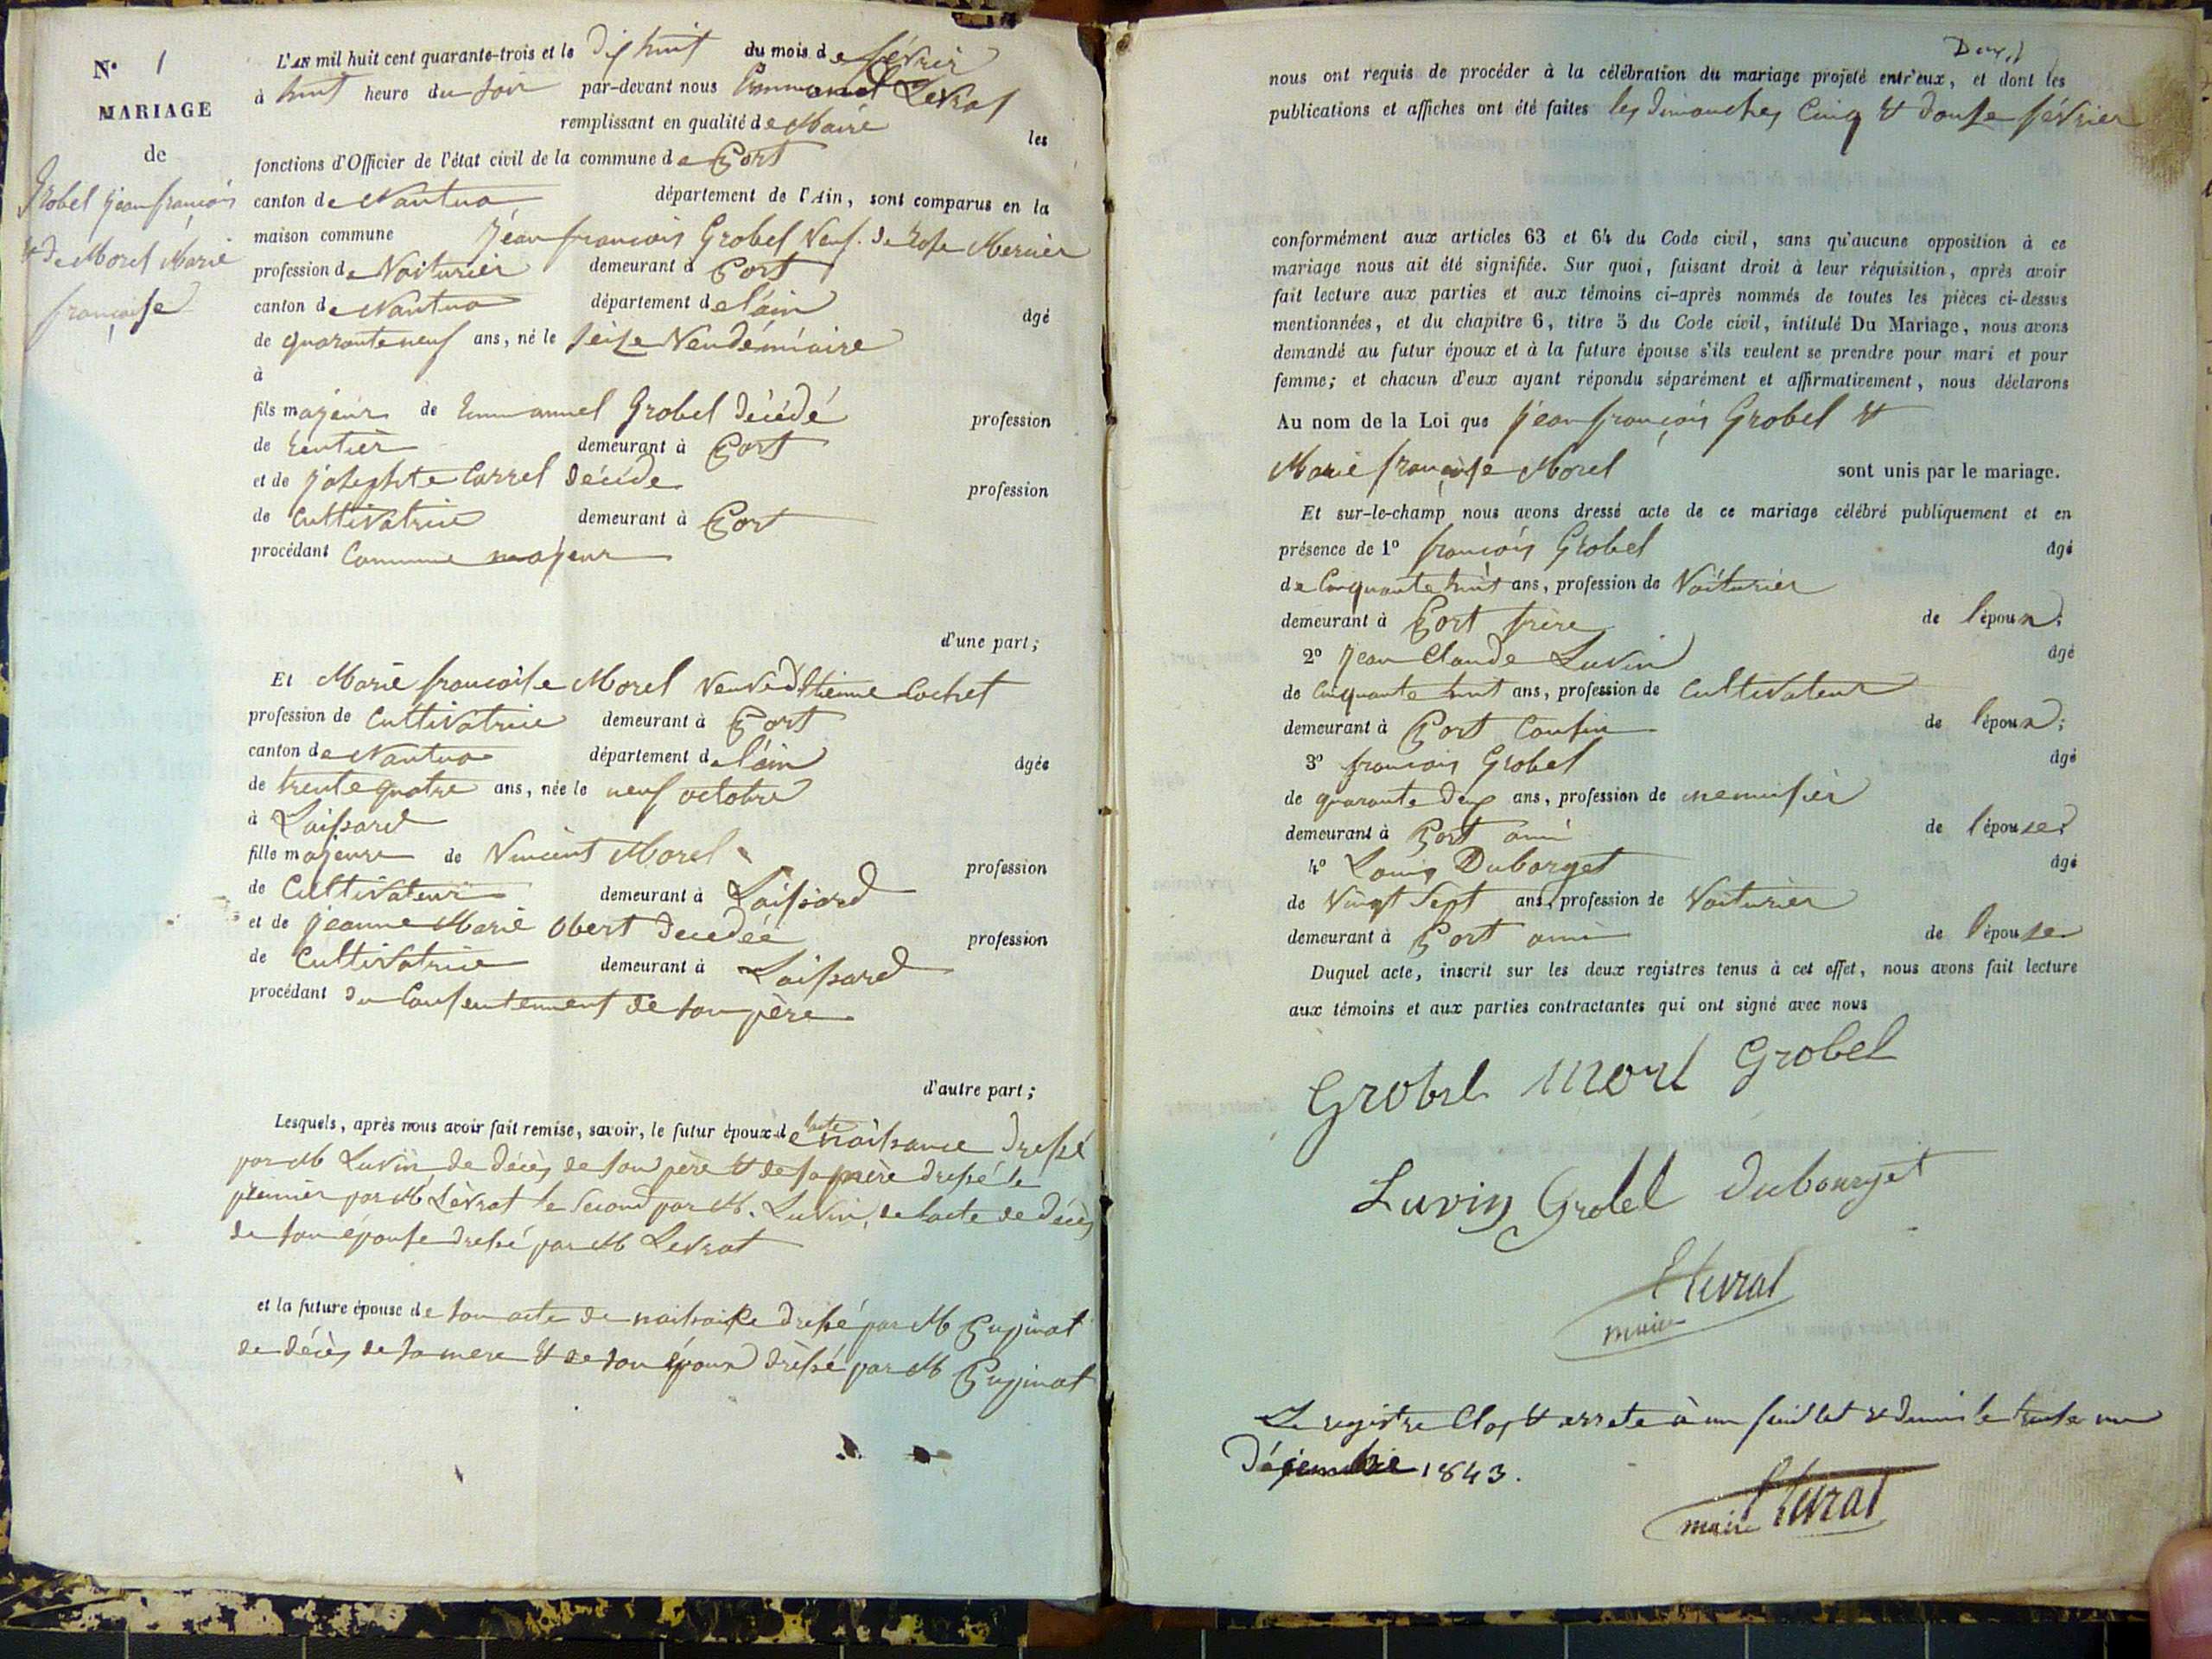 N° 1
MARIAGE
de
Grobel jean françois
& de Morel Marie
françoise
L'AN mil huit cent quarante-trois et le dix huit du mois de février
à huit heure du soir par-devant nous Emmanuel Levrat
remplissant en qualité de Maire les
fonctions d'Officier de l'état civil de la commune de Port
canton de Nantua département de l'Ain, sont comparus en la
maison commune jean francois Grobel Veuf de Rose Mercier
profession de Voiturier demeurant à Port
canton de Nantua département de l'ain âgé
de quarante neuf ans, né le seize Vendémiaire
à
fils majeur de Emmanuel Grobel décédé profession
de Rentier demeurant à Port
et de josephte Carrel décéde profession
de Cultivatrice demeurant à Port
procédant Comme majeur
d'une part;
Et Marie francoise Morel Veuve d'Etienne Cochet
profession de Cultivatrice demeurant à Port
canton de Nantua département de l'ain âgée
de trente quatre ans, née le neuf octobre
à Laissard
fille majeure de Vincent Morel profession
de Cultivateur demeurant à Laissard
et de jeanne Marie Obert décédée profession
de Cultivatrice demeurant à Laissard
procédant du Consentement de son père
d'autre part;
Lesquels, après nous avoir fait remise, savoir, le futur époux de l'acte naissance dressé
par M Luvin de décès de son père & de sa mère dressé le
premier par M Levrat le second par M. Luvin, de l'acte de décès
de son épouse dressé par M Levrat
et la future épouse de son acte de naissance dressé par M Puginat
de décès de sa mere & de son époux dressé par M Puginat
Deux
nous ont requis de procéder à la célébration du mariage projeté entr'eux, et dont les
publications et affiches ont été faites les dimanches Cinq & douse février
conformément aux articles 63 et 64 du Code civil, sans qu'aucune opposition à ce
mariage nous ait été signifiée. Sur quoi, faisant droit à leur réquisition, après avoir
fait lecture aux parties et aux témoins ci-après nommés de toutes les pièces ci-dessus
mentionnées, et du chapitre 6, titre 5 du Code civil, intitulé Du Mariage, nous avons
demandé au futur époux et à la future épouse s'ils veulent se prendre pour mari et pour
femme; et chacun d'eux ayant répondu séparément et affirmativement, nous déclarons
Au nom de la Loi que jean françois Grobel &
Marie françoise Morel sont unis par le mariage.
Et sur-le-champ nous avons dressé acte de ce mariage célébré publiquement et en
présence de 1° françois Grobel âgé
de Cinquante huit ans, profession de Voiturier
demeurant à Port frère de l'époux;
2° jean Claude Luvin âgé
de Cinquante huit ans, profession de Cultivateur
demeurant à Port Cousin de l'époux;
3° francois Grobel âgé
de quarante deux ans, profession de menuisier
demeurant à Port ami de l'épouse;
4° Louis Dubarget âgé
de Vingt Sept ans, profession de Voiturier
demeurant à Port ami de l'épouse
Duquel acte, inscrit sur les deux registres tenus à cet effet, nous avons fait lecture
aux témoins et aux parties contractantes qui ont signé avec nous
Grobel Morel Grobel
Luvin Grobel Dubourget
Levrat
maire
Le registre Clos & arrete à un feuillet & demi le trente un
Décembre 1843.
maire Levrat